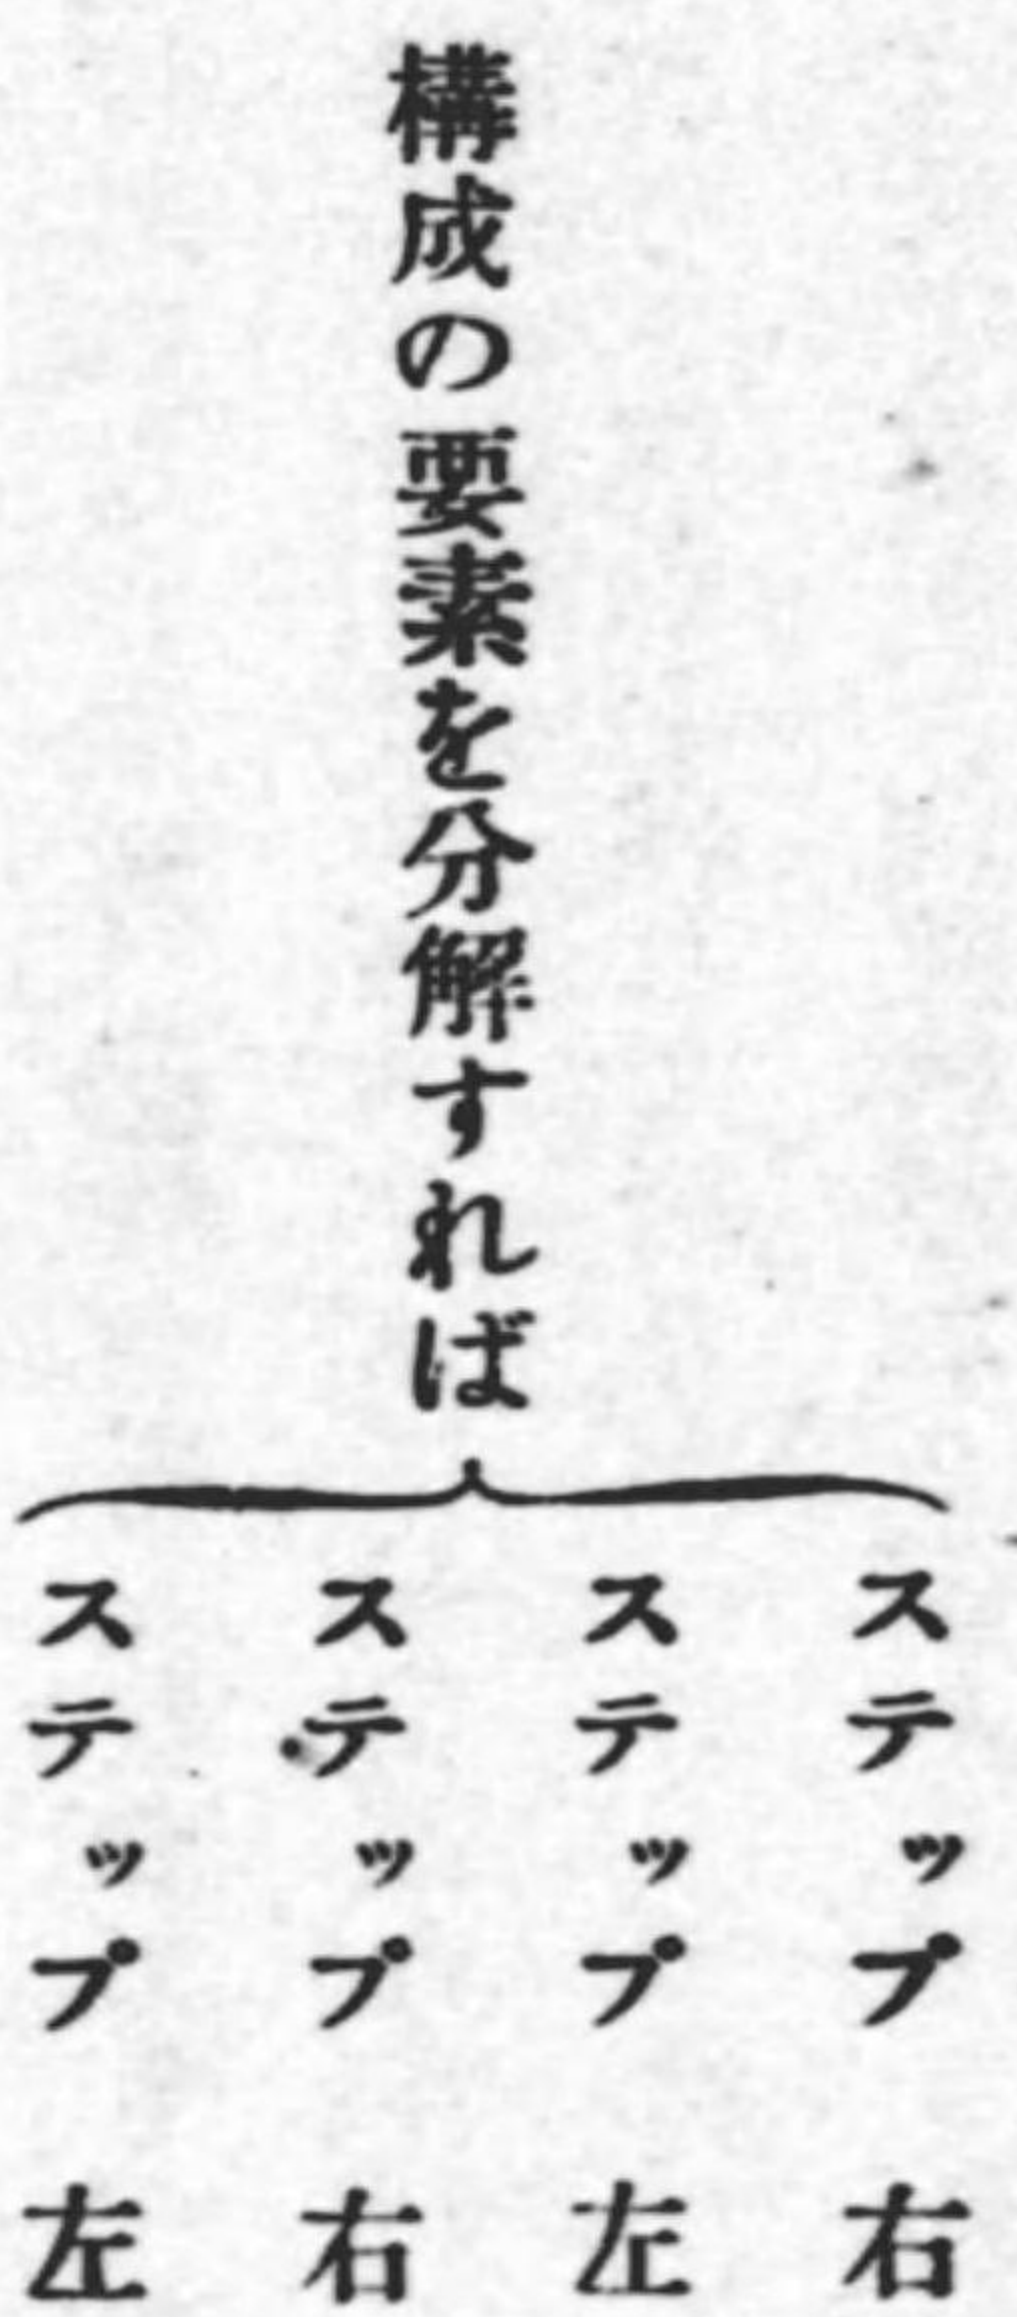 構成の要素を分解すれば
ステップ 右
ステップ 左
ステップ 右
ステップ 左